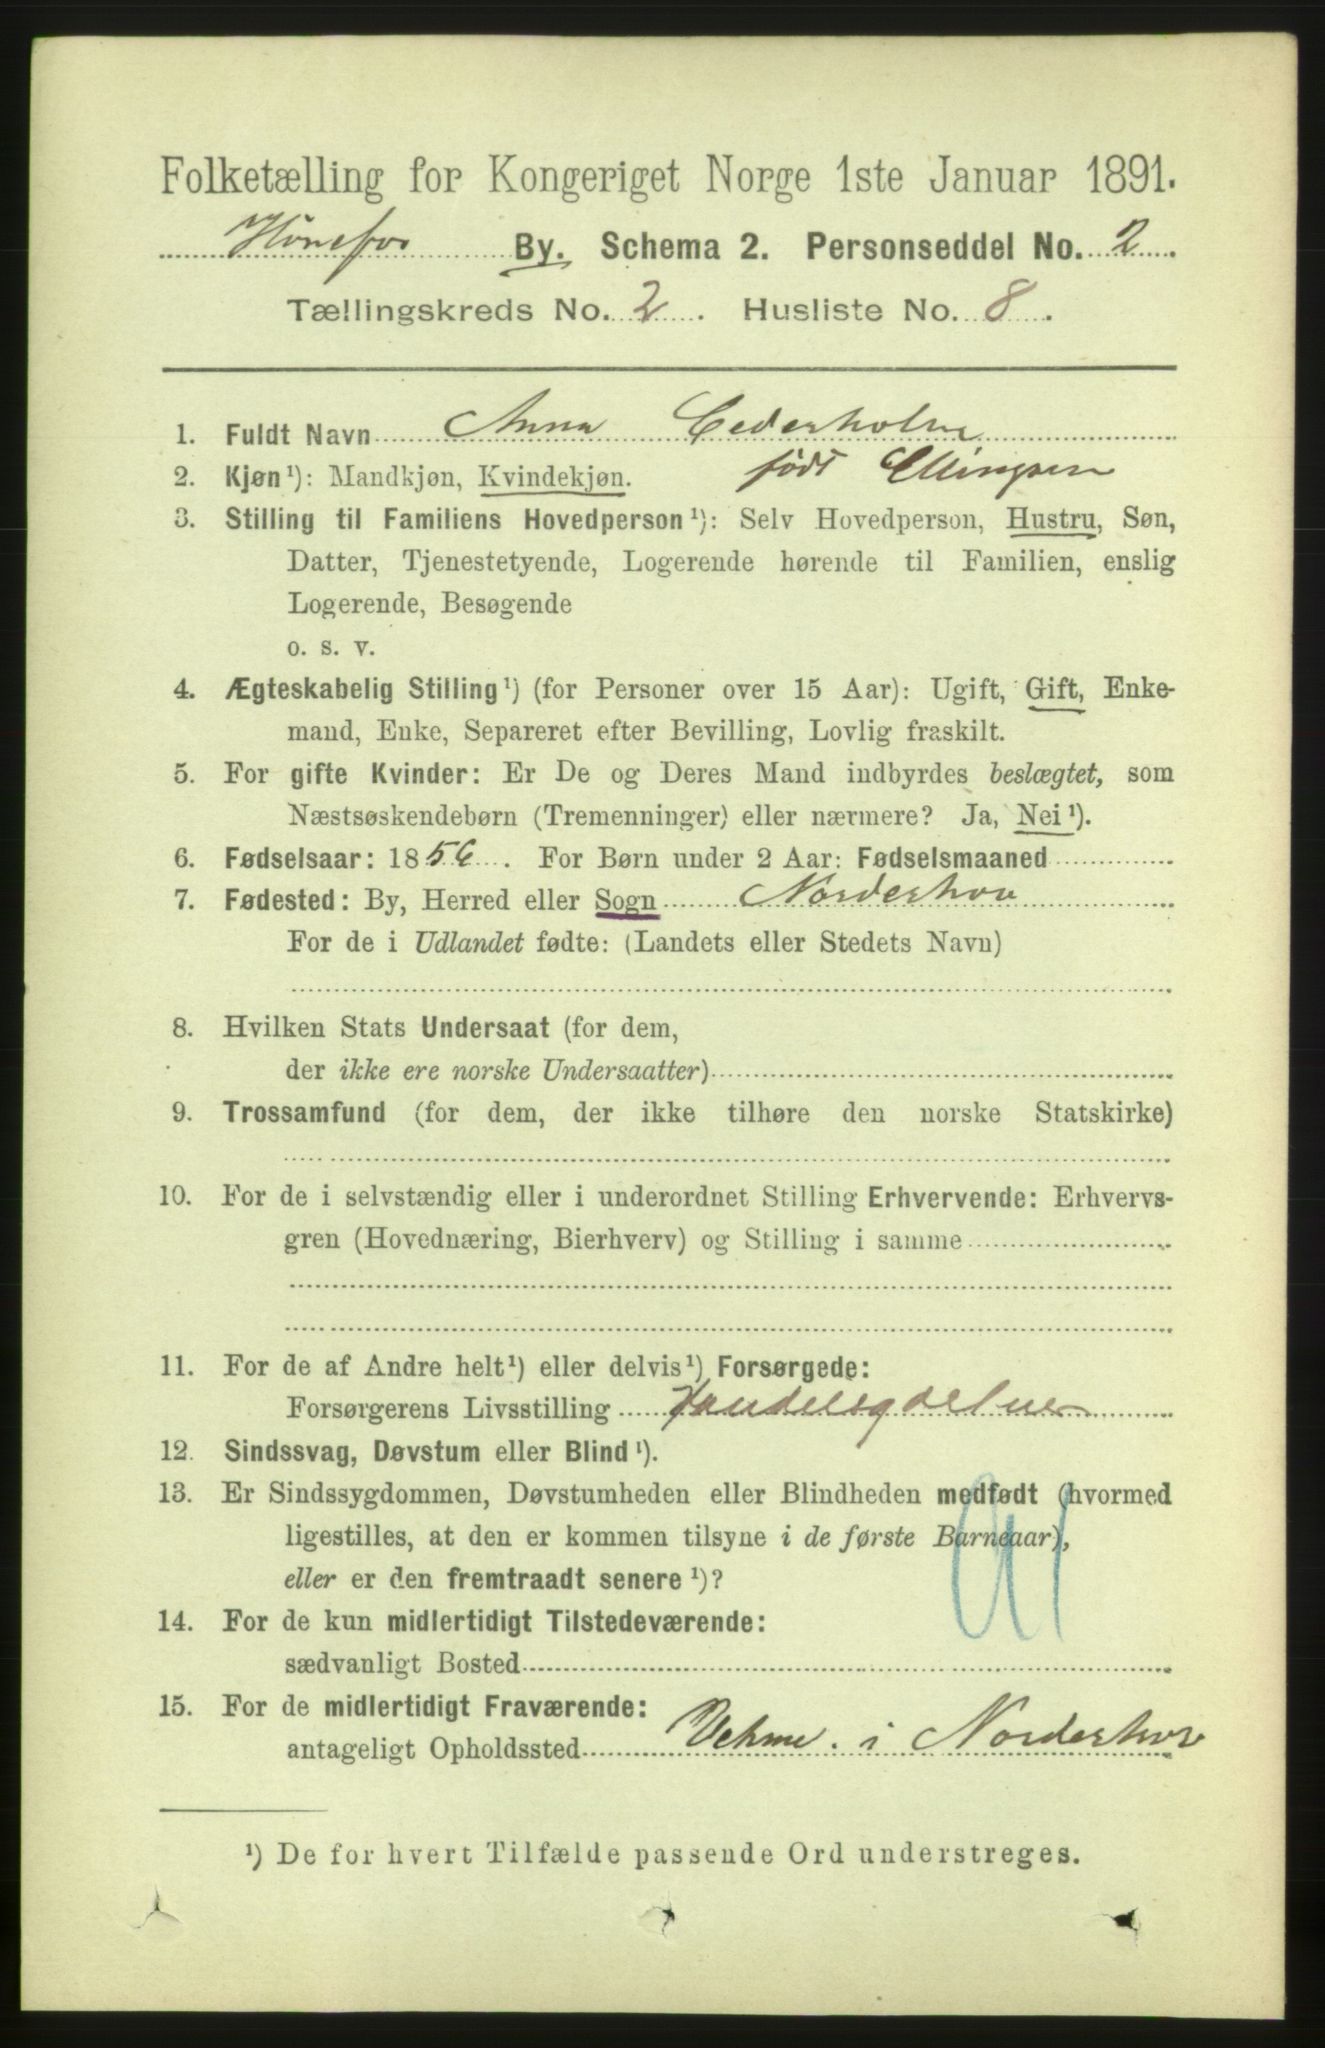 Folketælling for Kongeriget Norge 1ste Januar 1891.
Hønefos By. Schema 2. Personseddel No. 2.
Tællingskreds No. 2. Husliste No. 8.
1. Fuldt Navn Anna Cederholm
født Ellingsen
2. Kjøn¹): Mandkjøn, Kvindekjøn.
3. Stilling til Familiens Hovedperson¹): Selv Hovedperson, Hustru, Søn,
Datter, Tjenestetyende, Logerende hørende til Familien, enslig
Logerende, Besøgende
o. s. v.
4. Ægteskabelig Stilling¹) (for Personer over 15 Aar): Ugift, Gift, Enke-
mand, Enke, Separeret efter Bevilling, Lovlig fraskilt.
5. For gifte Kvinder: Er De og Deres Mand indbyrdes beslægtet, som
Næstsøskendebørn (Tremenninger) eller nærmere? Ja, Nei¹).
6. Fødselsaar: 1856. For Børn under 2 Aar: Fødselsmaaned
7. Fødested: By, Herred eller Sogn Norderhov
For de i Udlandet fødte: (Landets eller Stedets Navn)
8. Hvilken Stats Undersaat (for dem,
der ikke ere norske Undersaatter)
9. Trossamfund (for dem, der ikke tilhøre den norske Statskirke)
10. For de i selvstændig eller i underordnet Stilling Erhvervende: Erhvervs-
gren (Hovednæring, Bierhverv) og Stilling i samme
11. For de af Andre helt¹) eller delvis¹) Forsørgede:
Forsørgerens Livsstilling
12. Sindssvag, Døvstum eller Blind¹).
13. Er Sindssygdommen, Døvstumheden eller Blindheden medfødt (hvormed
ligestilles, at den er kommen tilsyne i de første Barneaar),
eller er den fremtraadt senere¹)?
14. For de kun midlertidigt Tilstedeværende:
sædvanligt Bosted
15. For de midlertidigt Fraværende:
antageligt Opholdssted Vehme. i Norderhov
¹) De for hvert Tilfælde passende Ord understreges.